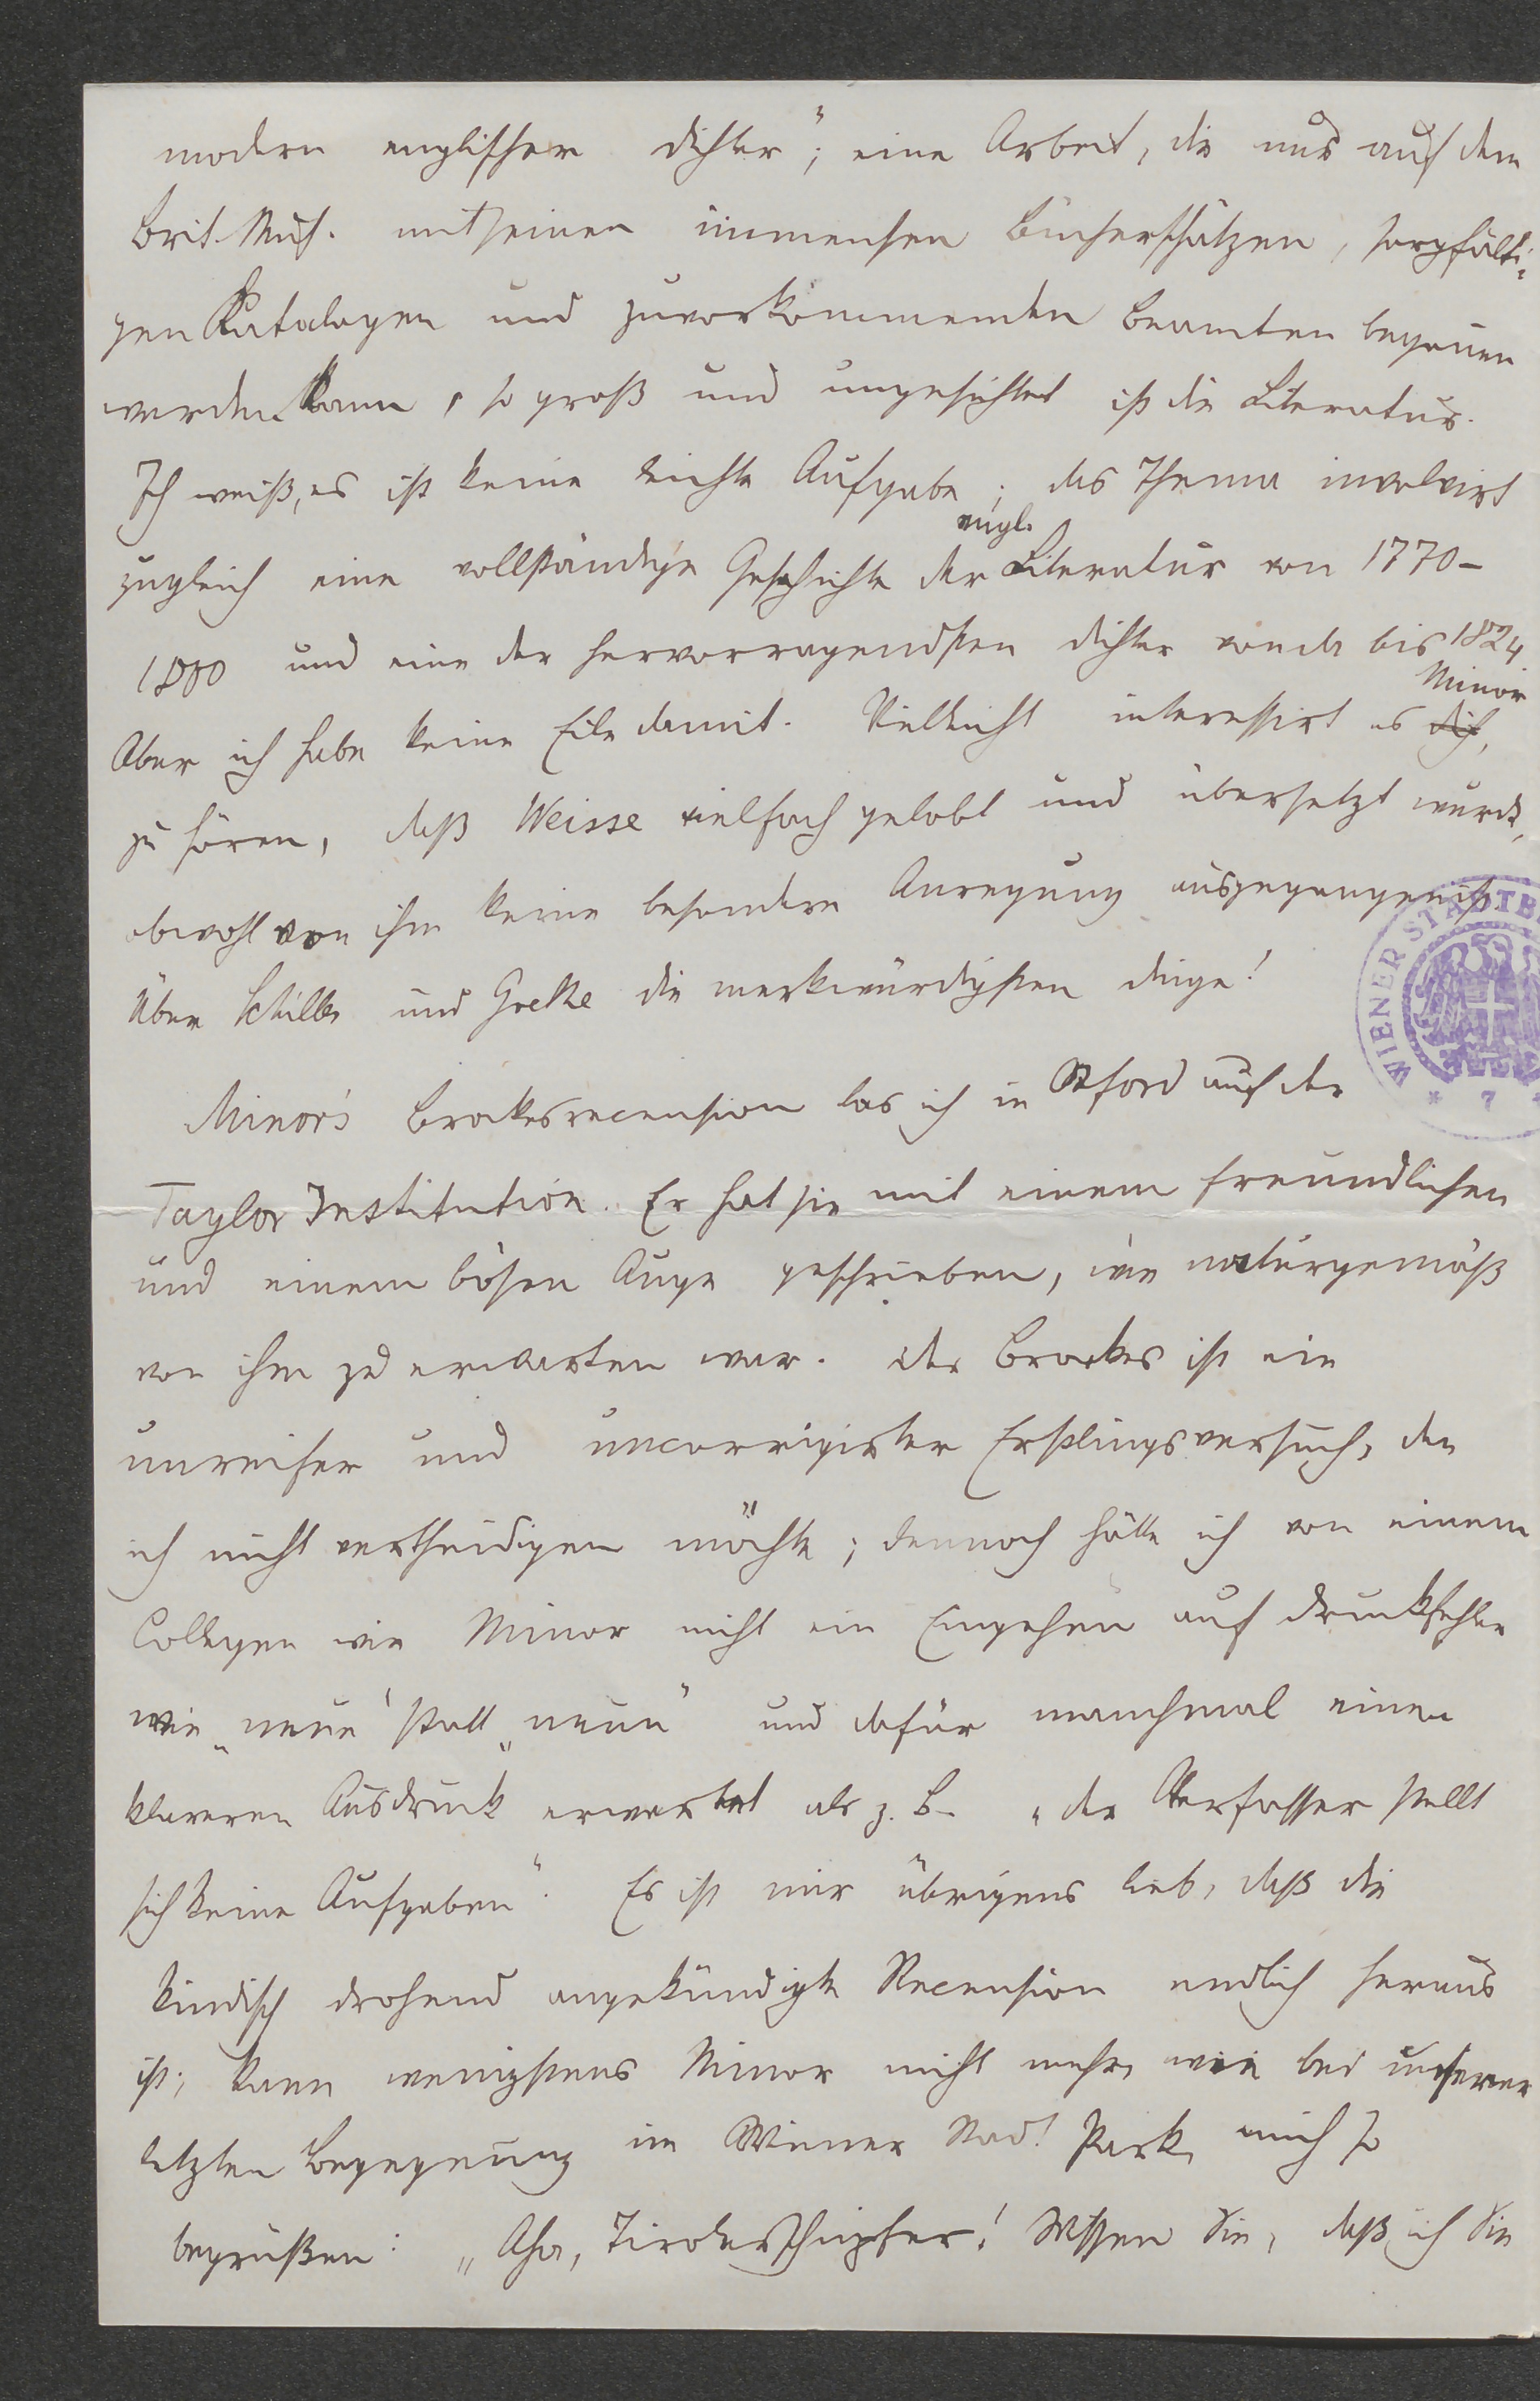 modern englischer Dichter“; eine Arbeit, die nur auf dem
Brit. Mus. mit seinen immensen Bücherschätzen, sorgfälti-
gen Katalogen und zuvorkommenden Beamten begonnen
werden kann, so groß und ungesichtet ist die Literatur.
Ich weiß, es ist keine leichte Aufgabe; das Thema involvirt
engl.
zugleich eine vollständige Geschichte der Literatur von 1770–
1800 und eine der hervorragendsten Dichter von da bis 1824.
Minor
Aber ich habe keine Eile damit. Vielleicht interessirt es dich,
zu hören, daß Weisse vielfach gelobt und übersetzt wurde,
obwohl von ihm keine besondere Anregung ausgegangen ist.
Über Schiller und Goethe die merkwürdigsten Dinge!
Minor's Brockesrecension las ich in Oxford auf der
Taylor Institution. Er hat sie mit einem freundlichen
und einem bösen Auge geschrieben, wie naturgemäß
von ihm zu erwarten war. Der Brockes ist ein
unreifer und uncorrigirter Erstlingsversuch, den
ich nicht vertheidigen möchte; dennoch hätte ich von einem
Collegen wie Minor nicht ein Eingehen auf Druckfehler
wie „neue“ statt „neun“ und dafür manchmal einen
klareren Ausdruck erwartet als z. B. „der Verfasser stellt
sich keine Aufgaben“. Es ist mir übrigens lieb, daß die
kindisch drohend angekündigte Recension endlich heraus
ist; kann wenigstens Minor nicht mehr, wie bei unserer
letzten Begegnung im Wiener Stadt Park, mich so
begrüßen: „Aha, Tirolerschützer! Wissen Sie, daß ich Sie
WIENER STADTB
* 7 *